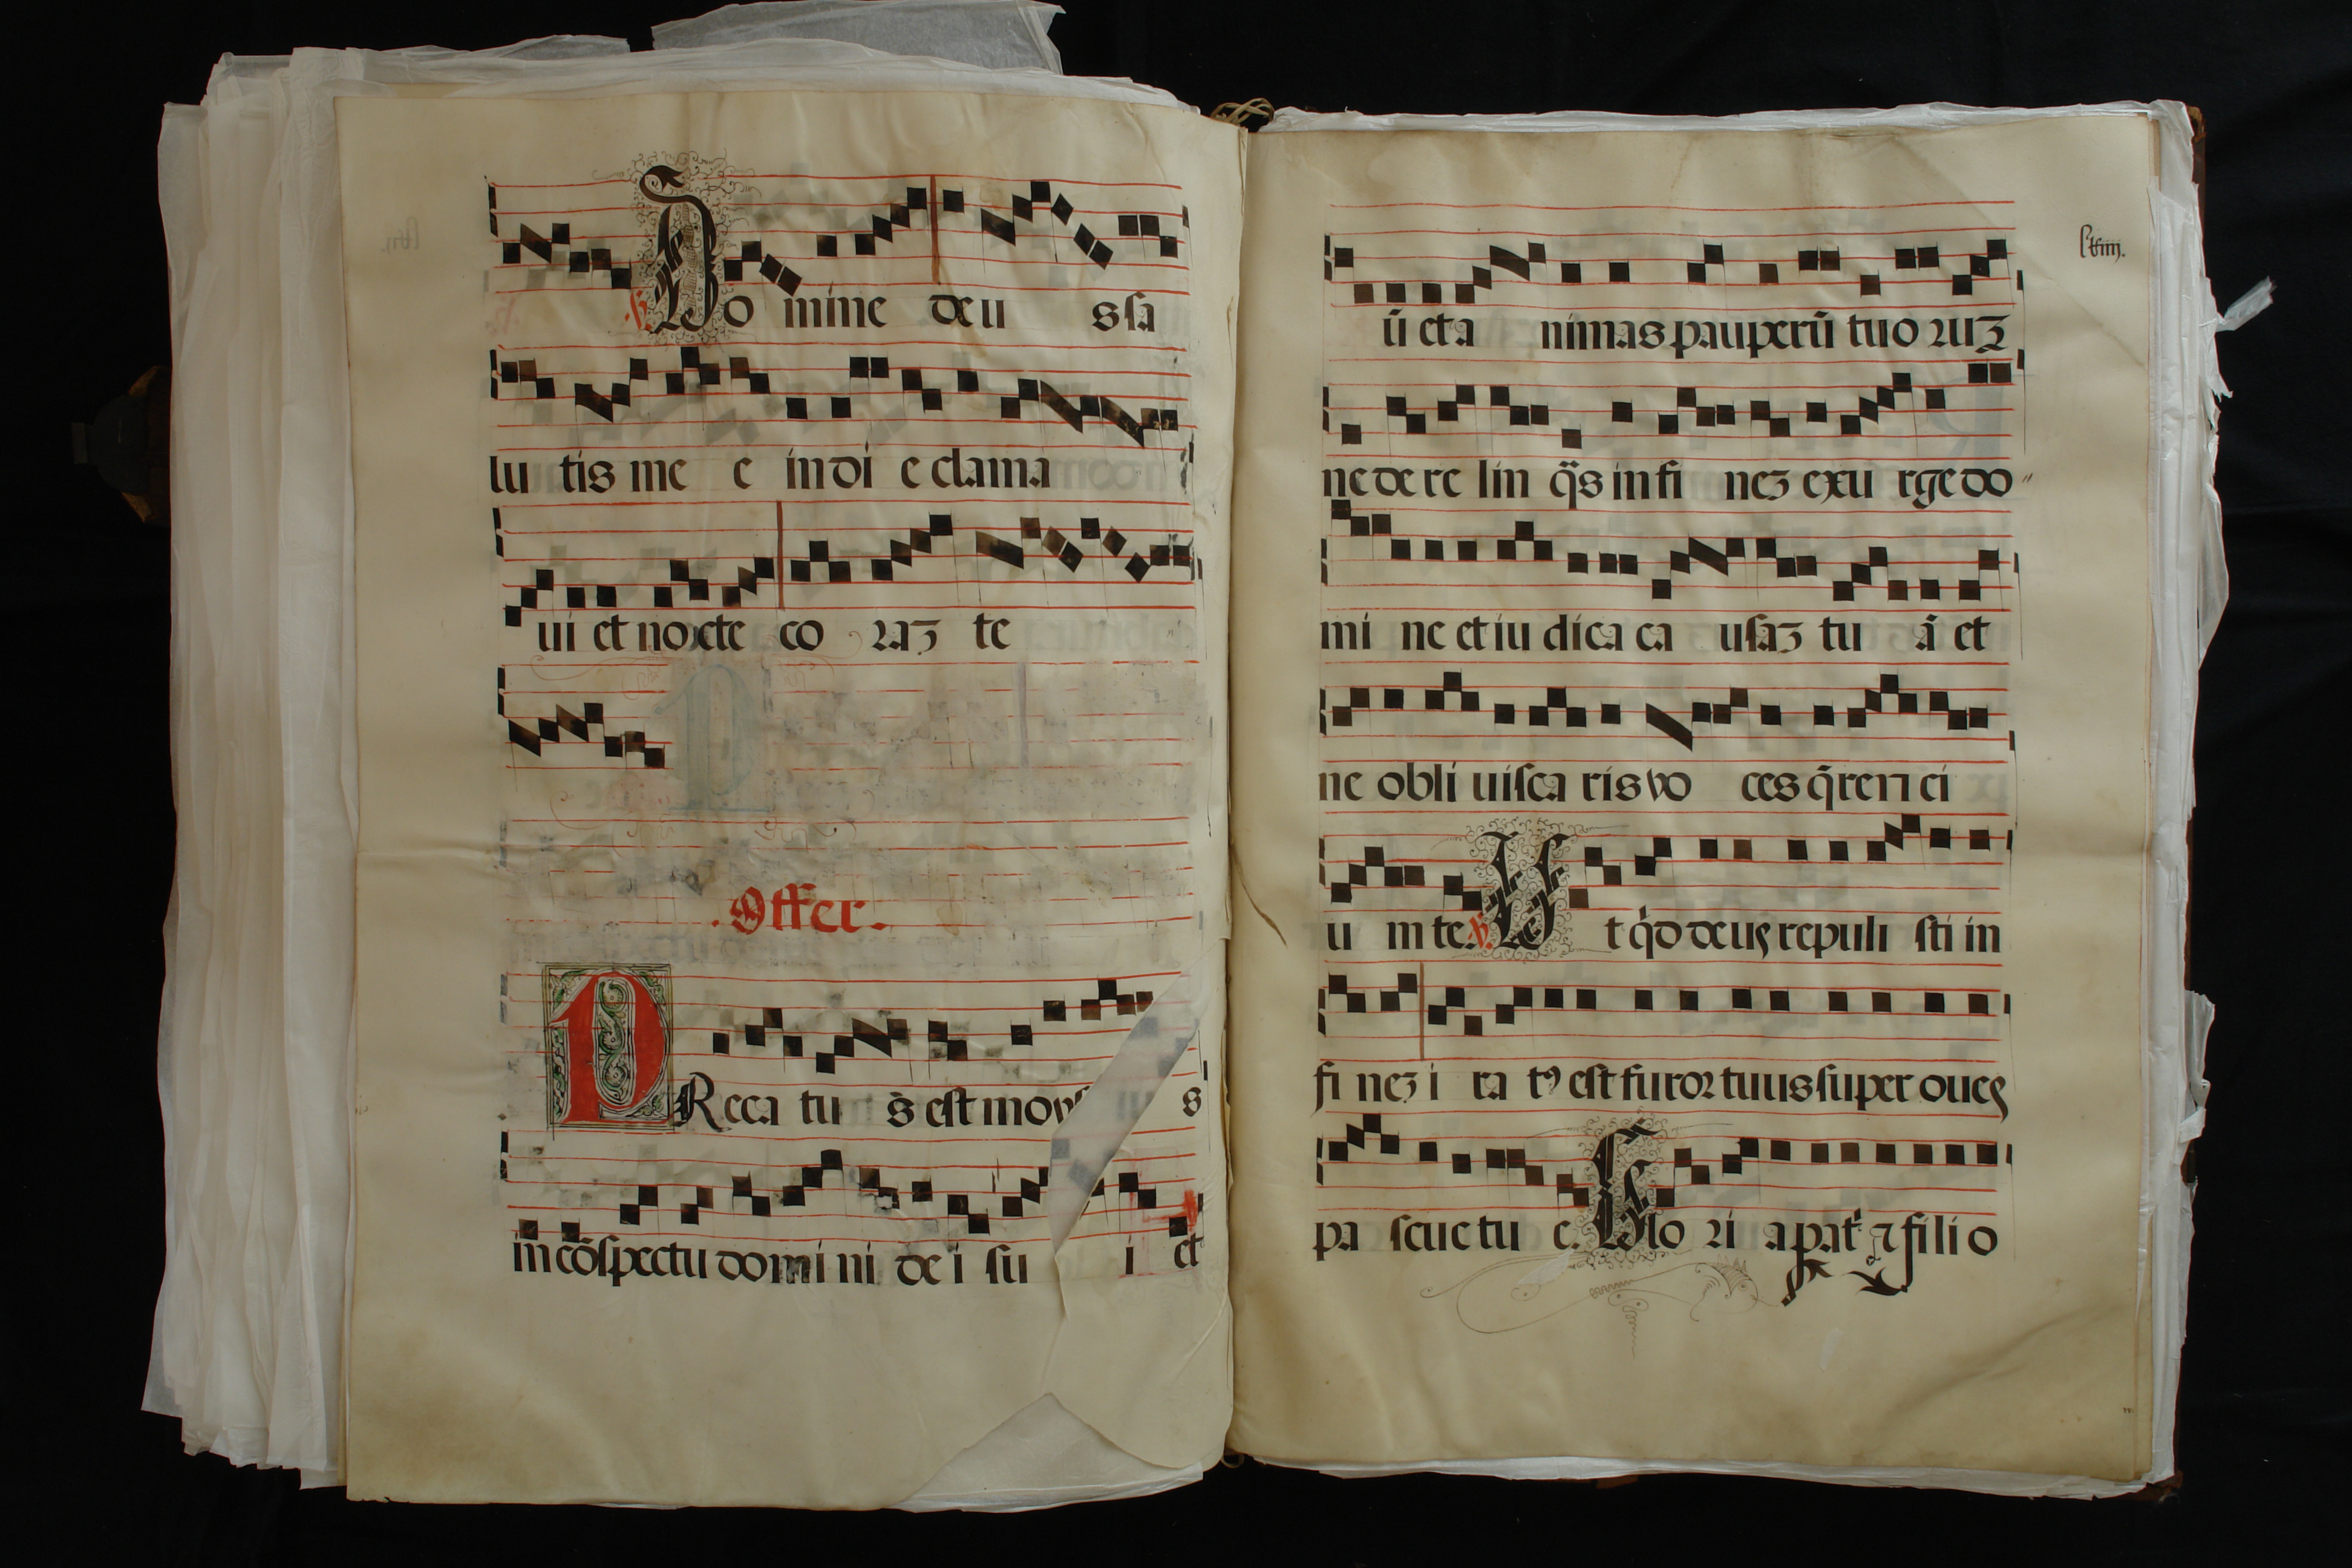 ℣. Do mine deu s sa
lu tis me e in di e clama
ui et nocte co raʒ te
.Offer.
PReca tu s̄ est moys s
in cōspectu domi ni de i su i et
lviiij.
ū et a nimas pauperū tuo ruʒ
ne de re lin q̄s in fi neʒ exu rge do〃
mi ne et iu dica ca usaʒ tu ā et
ne obli uisca ris vo ces q̄renti
u m te. ℣. Ut qͥd deus repuli sti in
fi neʒ i ra tꝰ est furor tuus super oues
pa scue tu e. Glo ri a pat ͥ ⁊ fili o